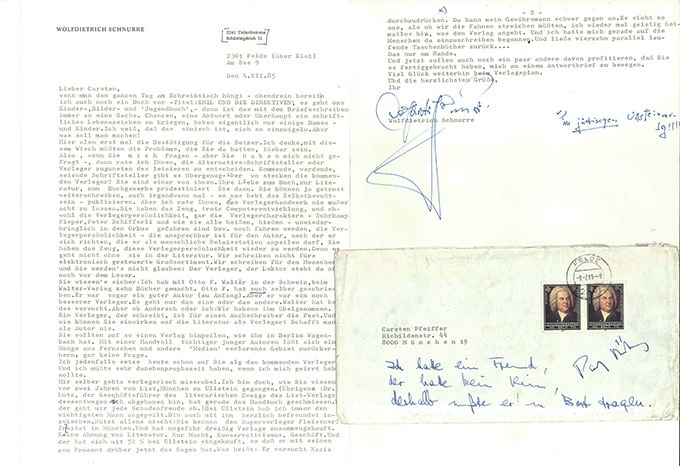 WOLFDIETRICH SCHNURRE
2301 Felde (über Kiel)
Am See 9
Den 4.VII.85
Lieber Carsten,
wenn man den ganzen Tag am Schreibtisch hängt - obendrein bereite
ich auch noch ein Buch vor -Titel:EMIL UND DIE DIREKTIVEN; es geht ums
Kinder-,Bilder- und 'Jugendbuch',- dann ist das mit dem Briefeschreiben
immer so eine Sache. Chancen, eine Antwort oder überhaupt ein schrift-
liches Lebenszeichen zu kriegen, haben eigentlich nur einige Damen
und Kinder.Ich weiß, daß das säuisch ist, sich so einzuigeln.Aber
was soll man machen?
Hier also erst mal die Bestätigung für die Setzer.Ich denke,mit die-
sem Wisch müßten die Probleme, die Sie da hatten, lösbar sein.
Also , wenn Sie m i c h fragen - aber Sie h a b e n mich nicht ge-
fragt -, dann rate ich Ihnen, die Alternative:Schriftsteller oder
Verleger zugunsten des letzteren zu entscheiden. Kommende, werdende,
seiende Schriftsteller gibt es übergenug.Aber wo stecken die kommen-
den Verleger? Sie sind einer von ihnen.Ihre Liebe zum Buch,zur Lite-
ratur, zum Buchgewerbe prädestiniert Sie dazu. Sie können ja getrost
weiterschreiben, auch irgendwann mal - so was hebt das Selbstbewußt-
sein - publizieren. Aber ich rate Ihnen, das Verlegerhandwerk nie außer
acht zu lassen.Sie haben das Zeug, trotz Computerentwicklung, und ob-
wohl die Verlegerpersönlichkeit, gar die Verlegercharaktere - Suhrkamp
Pieper,Peter Schifferli und wie sie alle heißen, hießen - unwieder-
bringlich in den Orkus gefahren sind bzw. noch fahren werden, die Ver-
legerpersönlichkeit - die ansprechbar ist für den Autor, nach der er
sich richten, die er als menschliche Relaisstation anpeilen darf, Sie
haben das Zeug, diese Verlegerpersönlichkeit wieder zu werden.Denn es
geht nicht ohne sie in der Literatur. Wir schreiben nicht fürs
elektronisch gesteuerte Großsortiment.Wir schreiben für den Menschen
und Sie werden's nicht glauben: Der Verleger, der Lektor steht da oft
noch vor dem Leser.
Sie wissen's sicher:Ich hab mit Otto F. Walter in der Schweiz,beim
Walter-Verlag zehn Bücher gemacht. Otto F. hat auch selber geschrie-
ben.Er war sogar ein guter Autor (zu Anfang).Aber er war ein noch
besserer Verleger.Es geht nur das eine oder das andere.Walter hat b
des versucht.Aber ob Andersch oder ich:Wir haben ihm übelgenommen.
Ein Verleger, der schreibt, ist für einen Autorscheuer die Pest.Und
wie können Sie einwirken auf die Literatur als Verleger! Schafft man
als Autor nie.
Sie sollten auf so einen Verlag hinpeilen, wie ihn in Berlin Wagen-
bach hat. Mit einer Handvoll tüchtiger junger Autoren läßt sich ein
Menge ans Fernsehen und andere 'Medien' verlorenes Gebiet zurücker-
bern, gar keine Frage.
Ich jedenfalls setze heute schon auf Sie als den kommenden Verleger
Und ich müßte sehr danebenprophezeit haben, wenn ich mich geirrt hab
sollte.
Mir selber gehts verlegerisch miserabel.Ich bin doch, wie Sie wissen
vor zwei Jahren von List,München zu Ullstein gegangen.(Übrigens :Dr.
Lutz, der Geschäftsführer des literarischen Zweigs des List-Verlags
dessentwegen ich abgehauen bin, hat gerade das Handtuch geschmissen,
der geht mir jede Schadenfreude ab.)Bei Ullstein hab ich immer den
wichtigsten Mann angepeilt.Bin auch mit ihm herzlich befreundet in-
zwischen.Nützt alles nicht:Sie kennen den Superverleger Fleissner?
Er sitzt in München.Und hat ungefähr dreißig Verlage zusammengekauft.
Keine Ahnung von Literatur. Nur Macht, Konservativismus, Geschäft.Und
der hat sich mit 52 % bei Ullstein eingekauft, so daß er mit seinen
gen Prozent drüber jetzt das Sagen hat.Was heißt: Er versucht Nazis
- 2 -
durchzudrücken. Da kann mein Gewährsmann schwer gegen an.Es sieht so
aus, als ob wir die Fahnen streichen müßten, ich wieder mal geistig hei-
matlos bin, was den Verlag angeht. Und ich hatte mich gerade auf die
Menschen da einzuschreiben begonnen.Und ließe vierzehn parallel lau-
fende Taschenbücher zurück....
Das nur am Rande.
Und jetzt sollen auch noch ein paar andere davon profitieren, daß Sie
es fertiggebracht haben, mich zu einem Antwortbrief zu bewegen.
Viel Glück weiterhin beim Verlagsplan.
Und die herzlichsten Grüße.
Ihr
Wolfdietrich Schnurre
FELDE
Carsten Pfeiffer
Richildenstr. 44
8000 M ü n c h e n 19
Ich hatte ein Freund,
der hatte kein Kinn,
deshalb mußte er 'n Bart tragen.